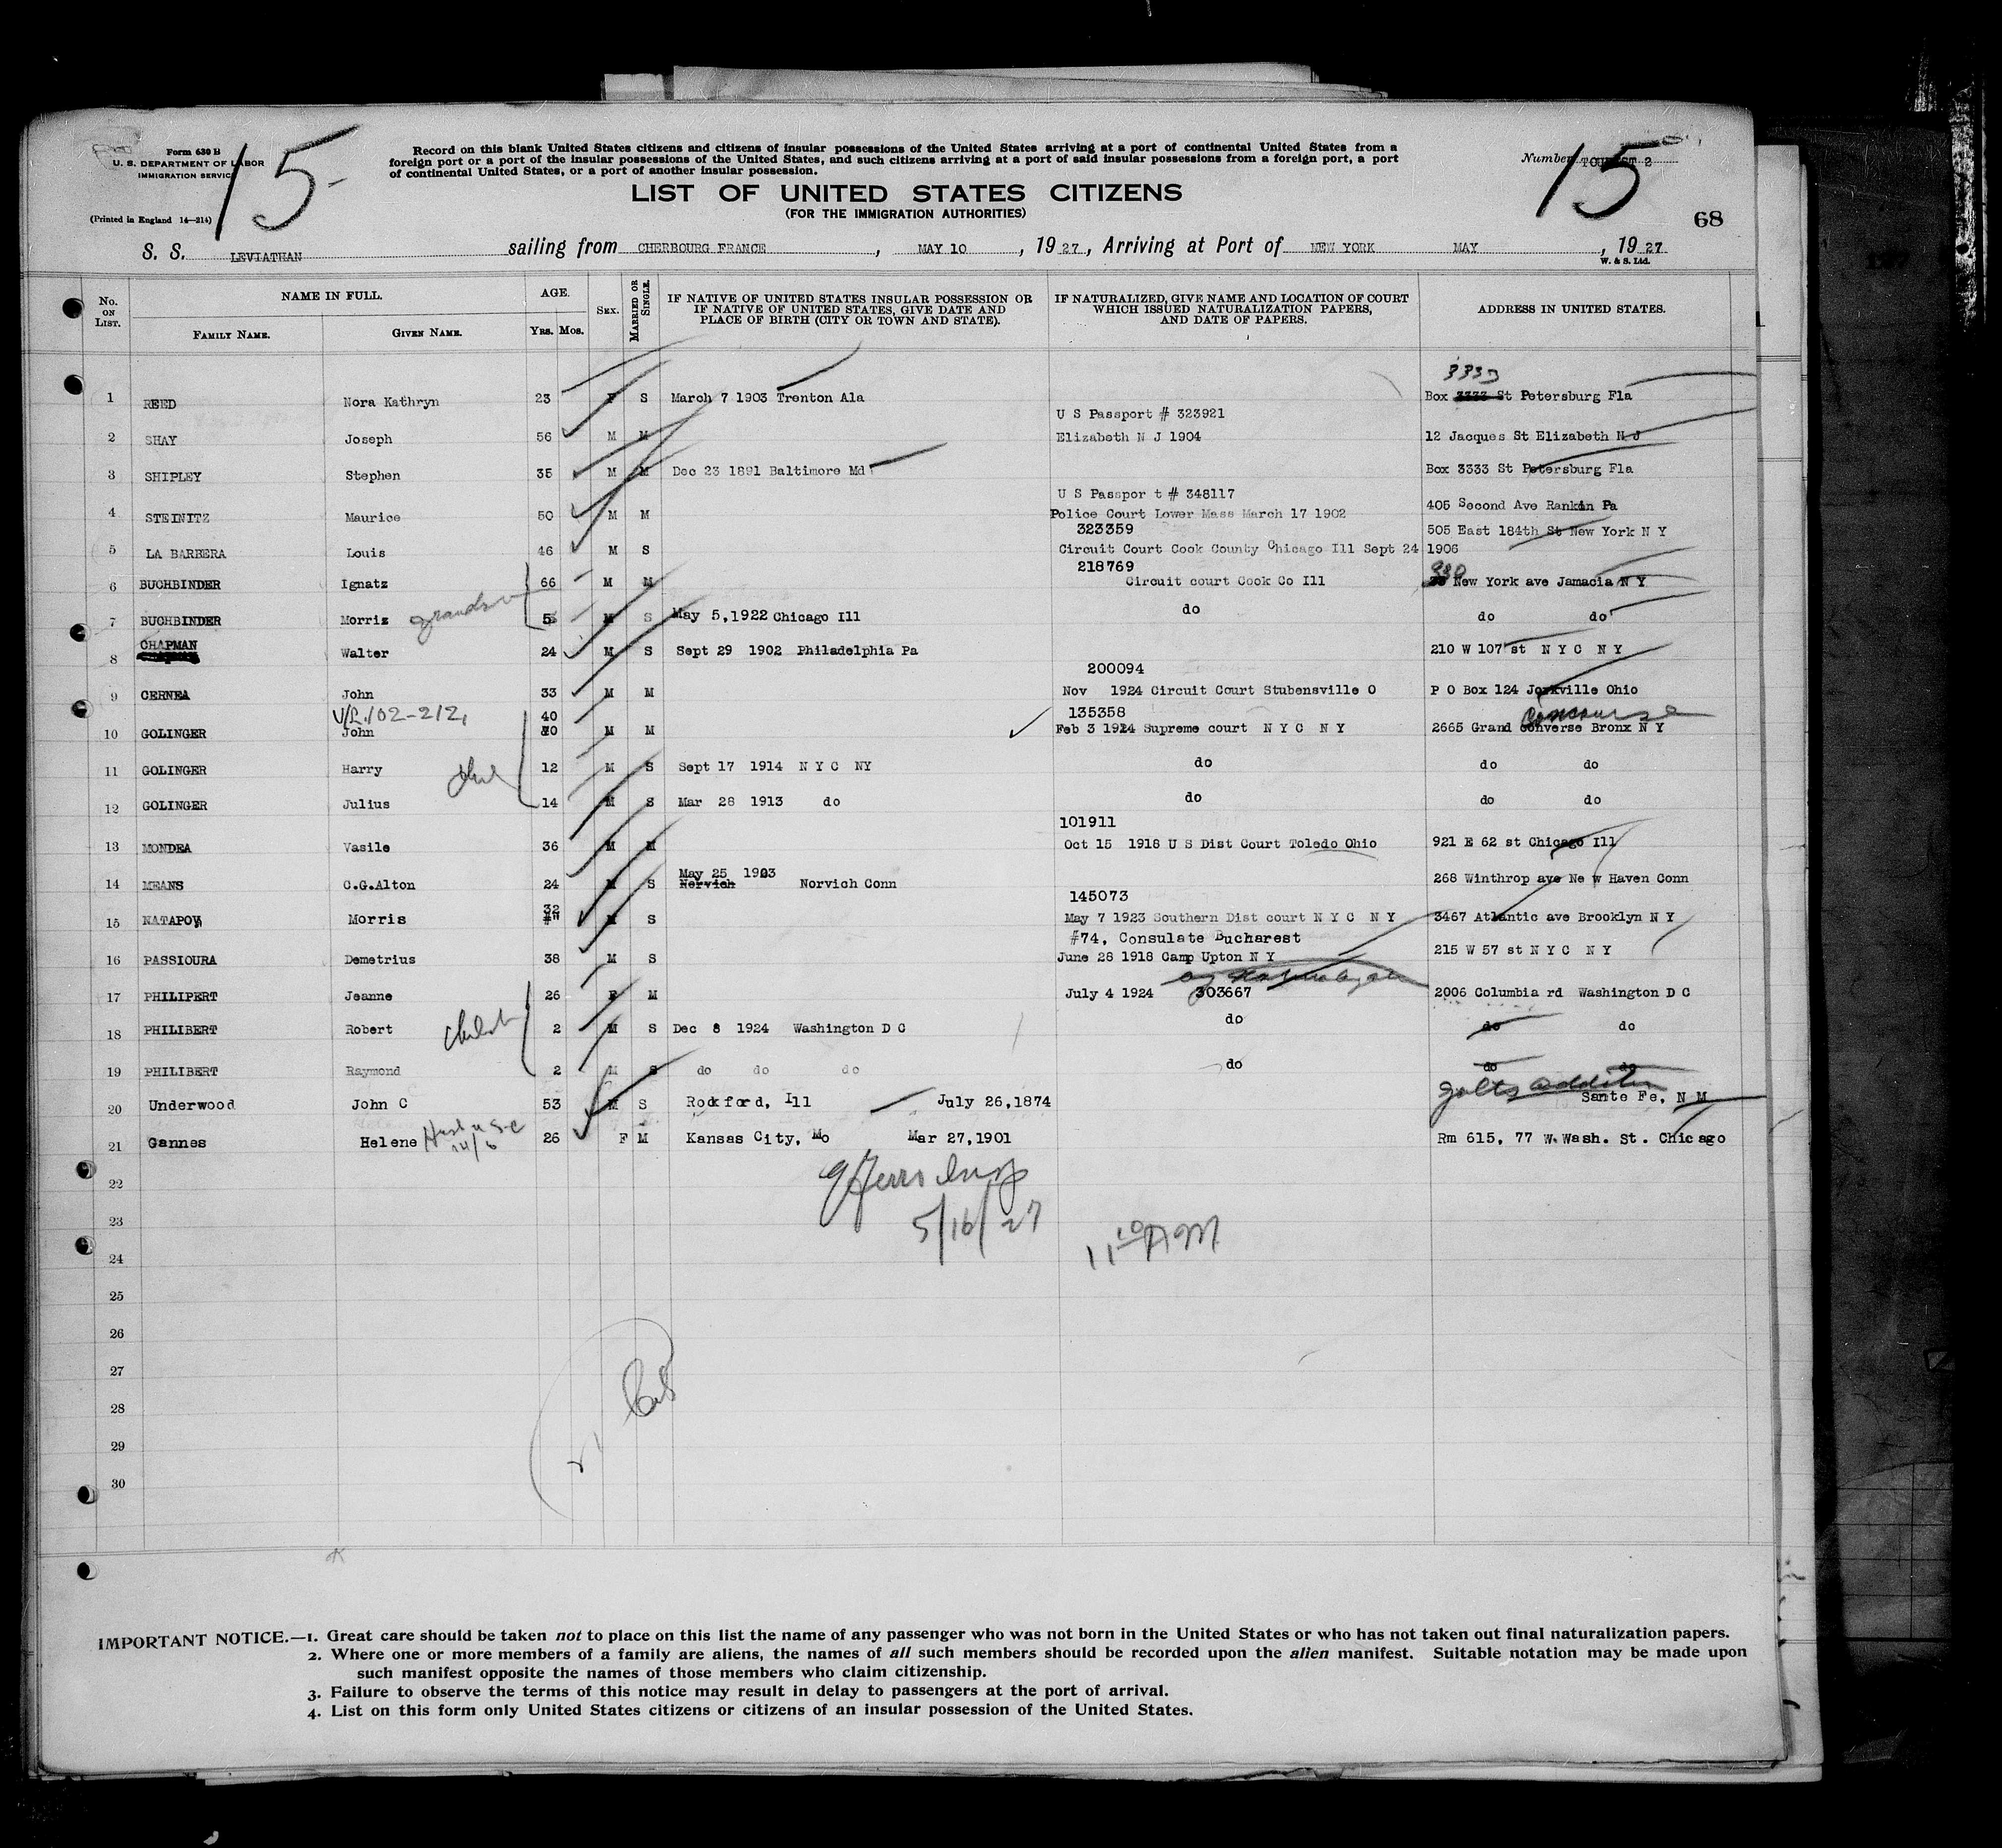 Form 630 B
U. S. DEPARTMENT OF LABOR
IMMIGRATION SERVICE
(Printed in England 14—214)
15-
Record on this blank United States citizens and citizens of insular possessions of the United States arriving at a port of continental United States from a
foreign port or a port of the insular possessions of the United States, and such citizens arriving at a port of said insular possessions from a foreign port, a port
of continental United States, or a port of another insular possession.
LIST OF UNITED STATES CITIZENS
(FOR THE IMMIGRATION AUTHORITIES)
Number TOURIST 2
15
68
S. S. LEVIATHAN sailing from CHERBOURG FRANCE, MAY 10, 1927, Arriving at Port of NEW YORK MAY, 1927
W. & S. Ltd.
No. ON LIST. NAME IN FULL. FAMILY NAME. GIVEN NAME. AGE. YRS. MOS. SEX. MARRIED OR SINGLE. IF NATIVE OF UNITED STATES INSULAR POSSESSION OR IF NATIVE OF UNITED STATES, GIVE DATE AND PLACE OF BIRTH (CITY OR TOWN AND STATE). IF NATURALIZED, GIVE NAME AND LOCATION OF COURT WHICH ISSUED NATURALIZATION PAPERS, AND DATE OF PAPERS. ADDRESS IN UNITED STATES.
3333
1 REED Nora Kathryn 23 F S March 7 1903 Trenton Ala Box 3333 St Petersburg Fla
U S Passport # 323921
2 SHAY Joseph 56 M M Elizabeth N J 1904 12 Jacques St Elizabeth N J
3 SHIPLEY Stephen 35 M M Dec 23 1891 Baltimore Md Box 3333 St Petersburg Fla
U S Passpor t # 348117
4 STEINITZ Maurice 50 M M Police Court Lower Mass March 17 1902 405 Second Ave Rankin Pa
323359 505 East 184th St New York N Y
5 LA BARBERA Louis 46 M S Circuit Court Cook County Chicago Ill Sept 24 1906
218769
6 BUCHBINDER Ignatz 66 M M Circuit court Cook Co Ill 330 New York ave Jamacia N Y
7 BUCHBINDER Morris grandson 5 M S May 5,1922 Chicago Ill do do do
CHAPMAN
8 Walter 24 M S Sept 29 1902 Philadelphia Pa 210 W 107 st N Y C N Y
200094
9 CERNEA John 33 M M Nov 1924 Circuit Court Stubensville O P O Box 124 Jorkville Ohio
V/L 102-212, 40 135358 Concourse
10 GOLINGER John M M Feb 3 1914 Supreme court N Y C N Y 2665 Grand Converse Bronx N Y
11 GOLINGER Harry 12 M S Sept 17 1914 N Y C NY do do do
12 GOLINGER Julius 14 M S Mar 28 1913 do do do do
101911
13 MONDEA Vasile 36 M M Oct 15 1918 U S Dist Court Toledo Ohio 921 E 62 st Chicago Ill
May 25 1903
14 MEANS C.G.Alton 24 M S Norvich Norvich Conn 268 Winthrop ave Ne w Haven Conn
32 145073
15 NATAPOV Morris M S May 7 1923 Southern Dist court N Y C N Y 3467 Atlantic ave Brooklyn N Y
#74, Consulate Bucharest
16 PASSIOURA Demetrius 38 M S June 28 1918 Camp Upton N Y 215 W 57 st N Y C N Y
17 PHILIPERT Jeanne 26 F M July 4 1924 303667 2006 Columbia rd Washington D C
18 PHILIBERT Robert 2 M S Dec 8 1924 Washington D C do do do
19 PHILIBERT Raymond 2 M S do do do do do do
20 Underwood John C 53 M S Rockford, Ill July 26,1874 Sante Fe, N M
21 Gannes Helene 26 F M Kansas City, Mo Mar 27,1901 Rm 615, 77 W. Wash. St. Chicago
22
5/16/27
23
11 10 AM
24
25
26
27
28
29
30
IMPORTANT NOTICE.—1. Great care should be taken not to place on this list the name of any passenger who was not born in the United States or who has not taken out final naturalization papers.
2. Where one or more members of a family are aliens, the names of all such members should be recorded upon the alien manifest. Suitable notation may be made upon
such manifest opposite the names of those members who claim citizenship.
3. Failure to observe the terms of this notice may result in delay to passengers at the port of arrival.
4. List on this form only United States citizens or citizens of an insular possession of the United States.